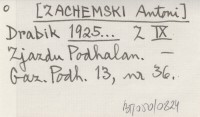 [ZACHEMSKI Antoni]
Drabik 1925... Z IX
Zjazdu Podhalan. —
Gaz. Podh. 13, nr 36.